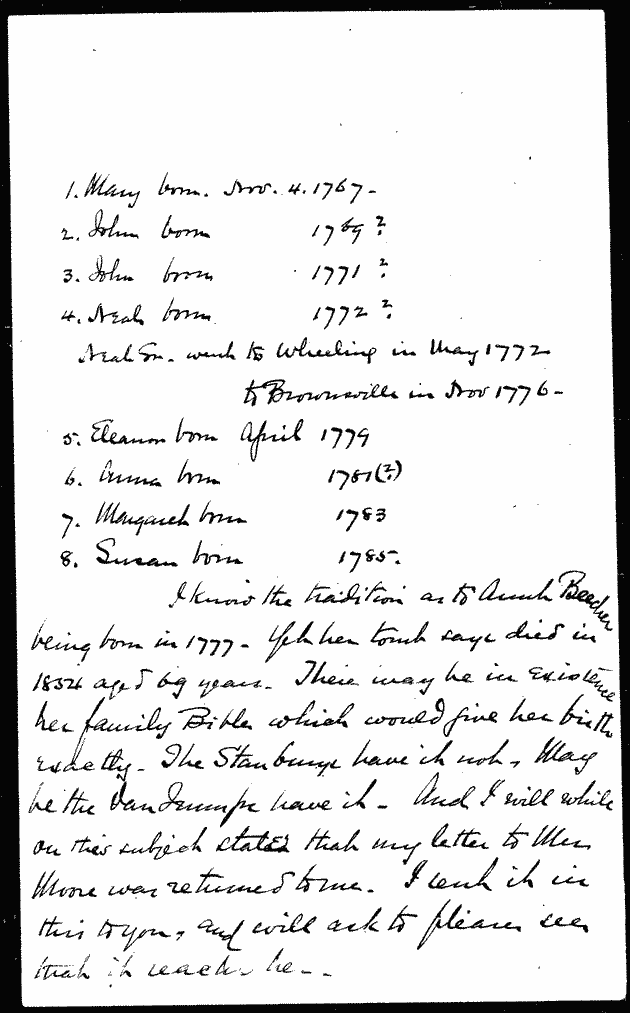 1. Mary born. Nov. 4. 1767-
2. John born 1769?
3. John born 1771?
4. Neal born 1772?
Neal Sr. went to Wheeling in May 1772
to Brownsville in Nov 1776-
5. Eleanor born April 1779
6. Anna born 1781(?)
7. Margaret born 1783
8. Susan born 1785.
I know the tradition as to Aunt Beecher
being born in 1777- Yet her tomb says died in
aged 69 years. There may be in existence
her family Bible which would give her birth
exactly- The Stanburys have it not, May
be the Van have it- And I will while
on this subject state that my letter to Mrs
Moore was returned to me. I send it in
this to you, and will ask to please see
that it reaches her-